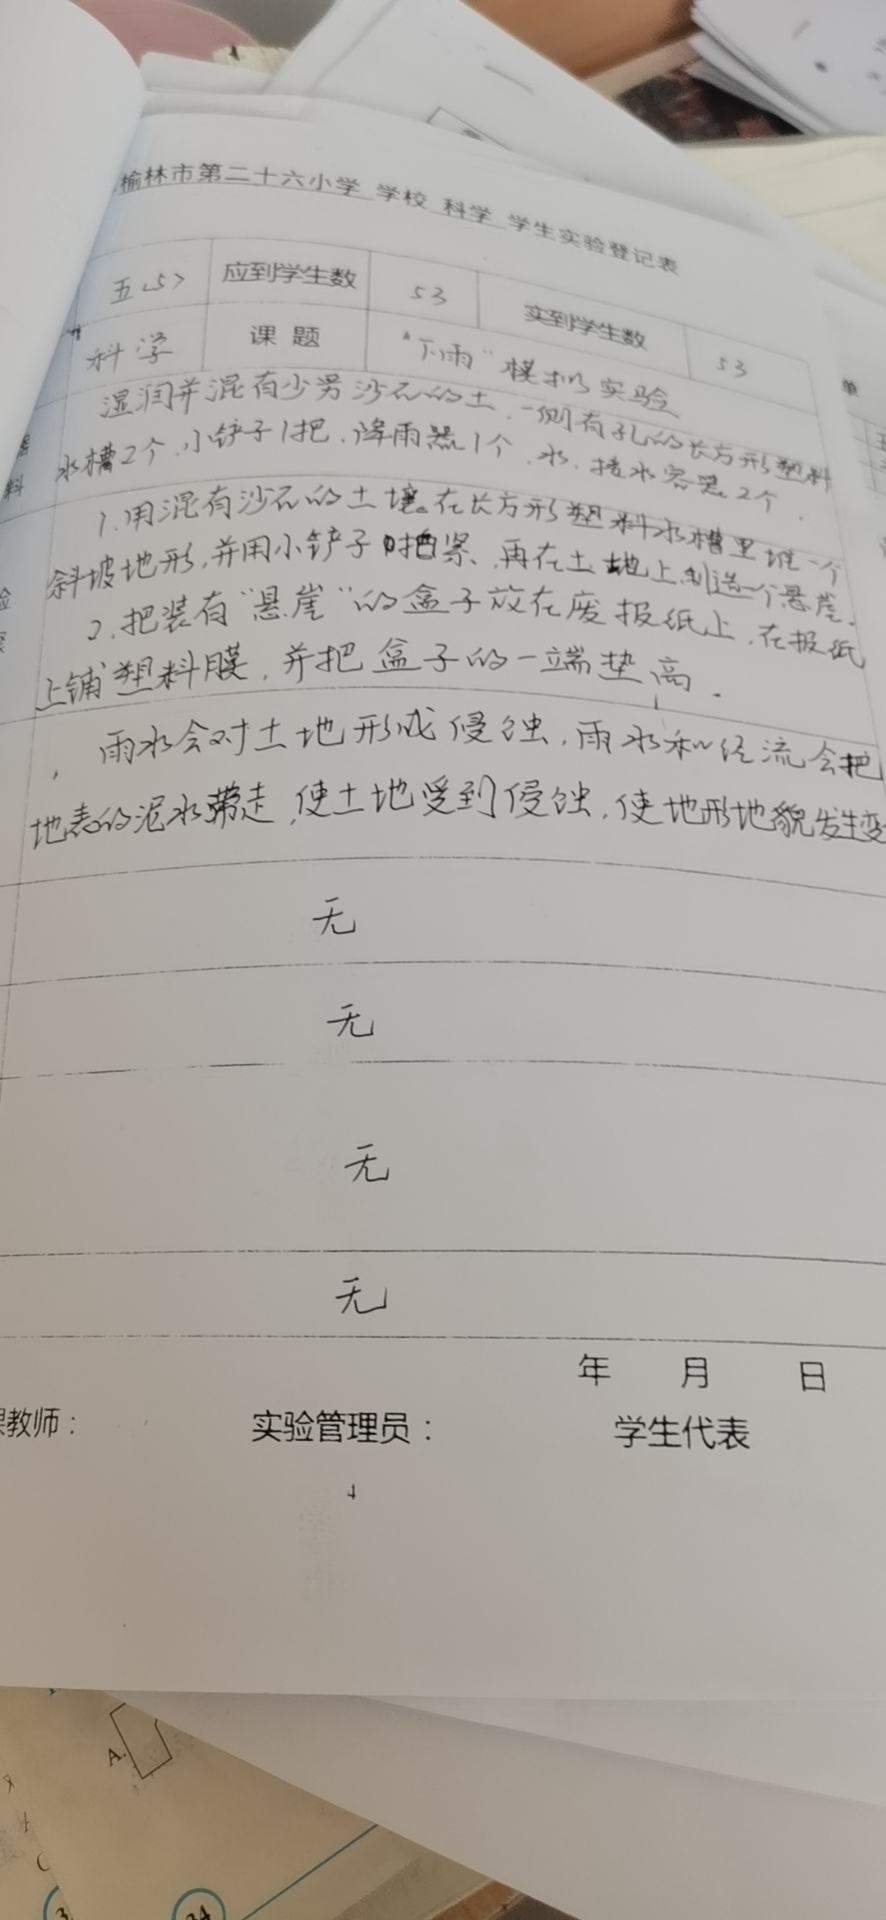 榆林市第二十六小学 学校 科学 学生实验登记表
五<5> 应到学生数 53 实到学生数 53
科学 课题 "下雨"模拟实验
湿润并混有少另沙石的土,一侧有孔的长方形塑料
水槽2个,小铲子1把,降雨器1个,水,接水容器2个.
料
1.用混有沙石的土壤。在长方形塑料水槽里堆一个
斜坡地形,并用小铲子拍紧,再在土地上制造一个悬崖.
2.把装有"悬崖"的盒子放在废报纸上,在报纸
上铺塑料膜,并把盒子的一端垫高.
雨水会对土地形成侵蚀,雨水和径流会把
地表的泥水带走,使土地受到侵蚀,使地形地貌发生变
无
无
无
无
年 月 日
课教师: 实验管理员: 学生代表
4
A.
34